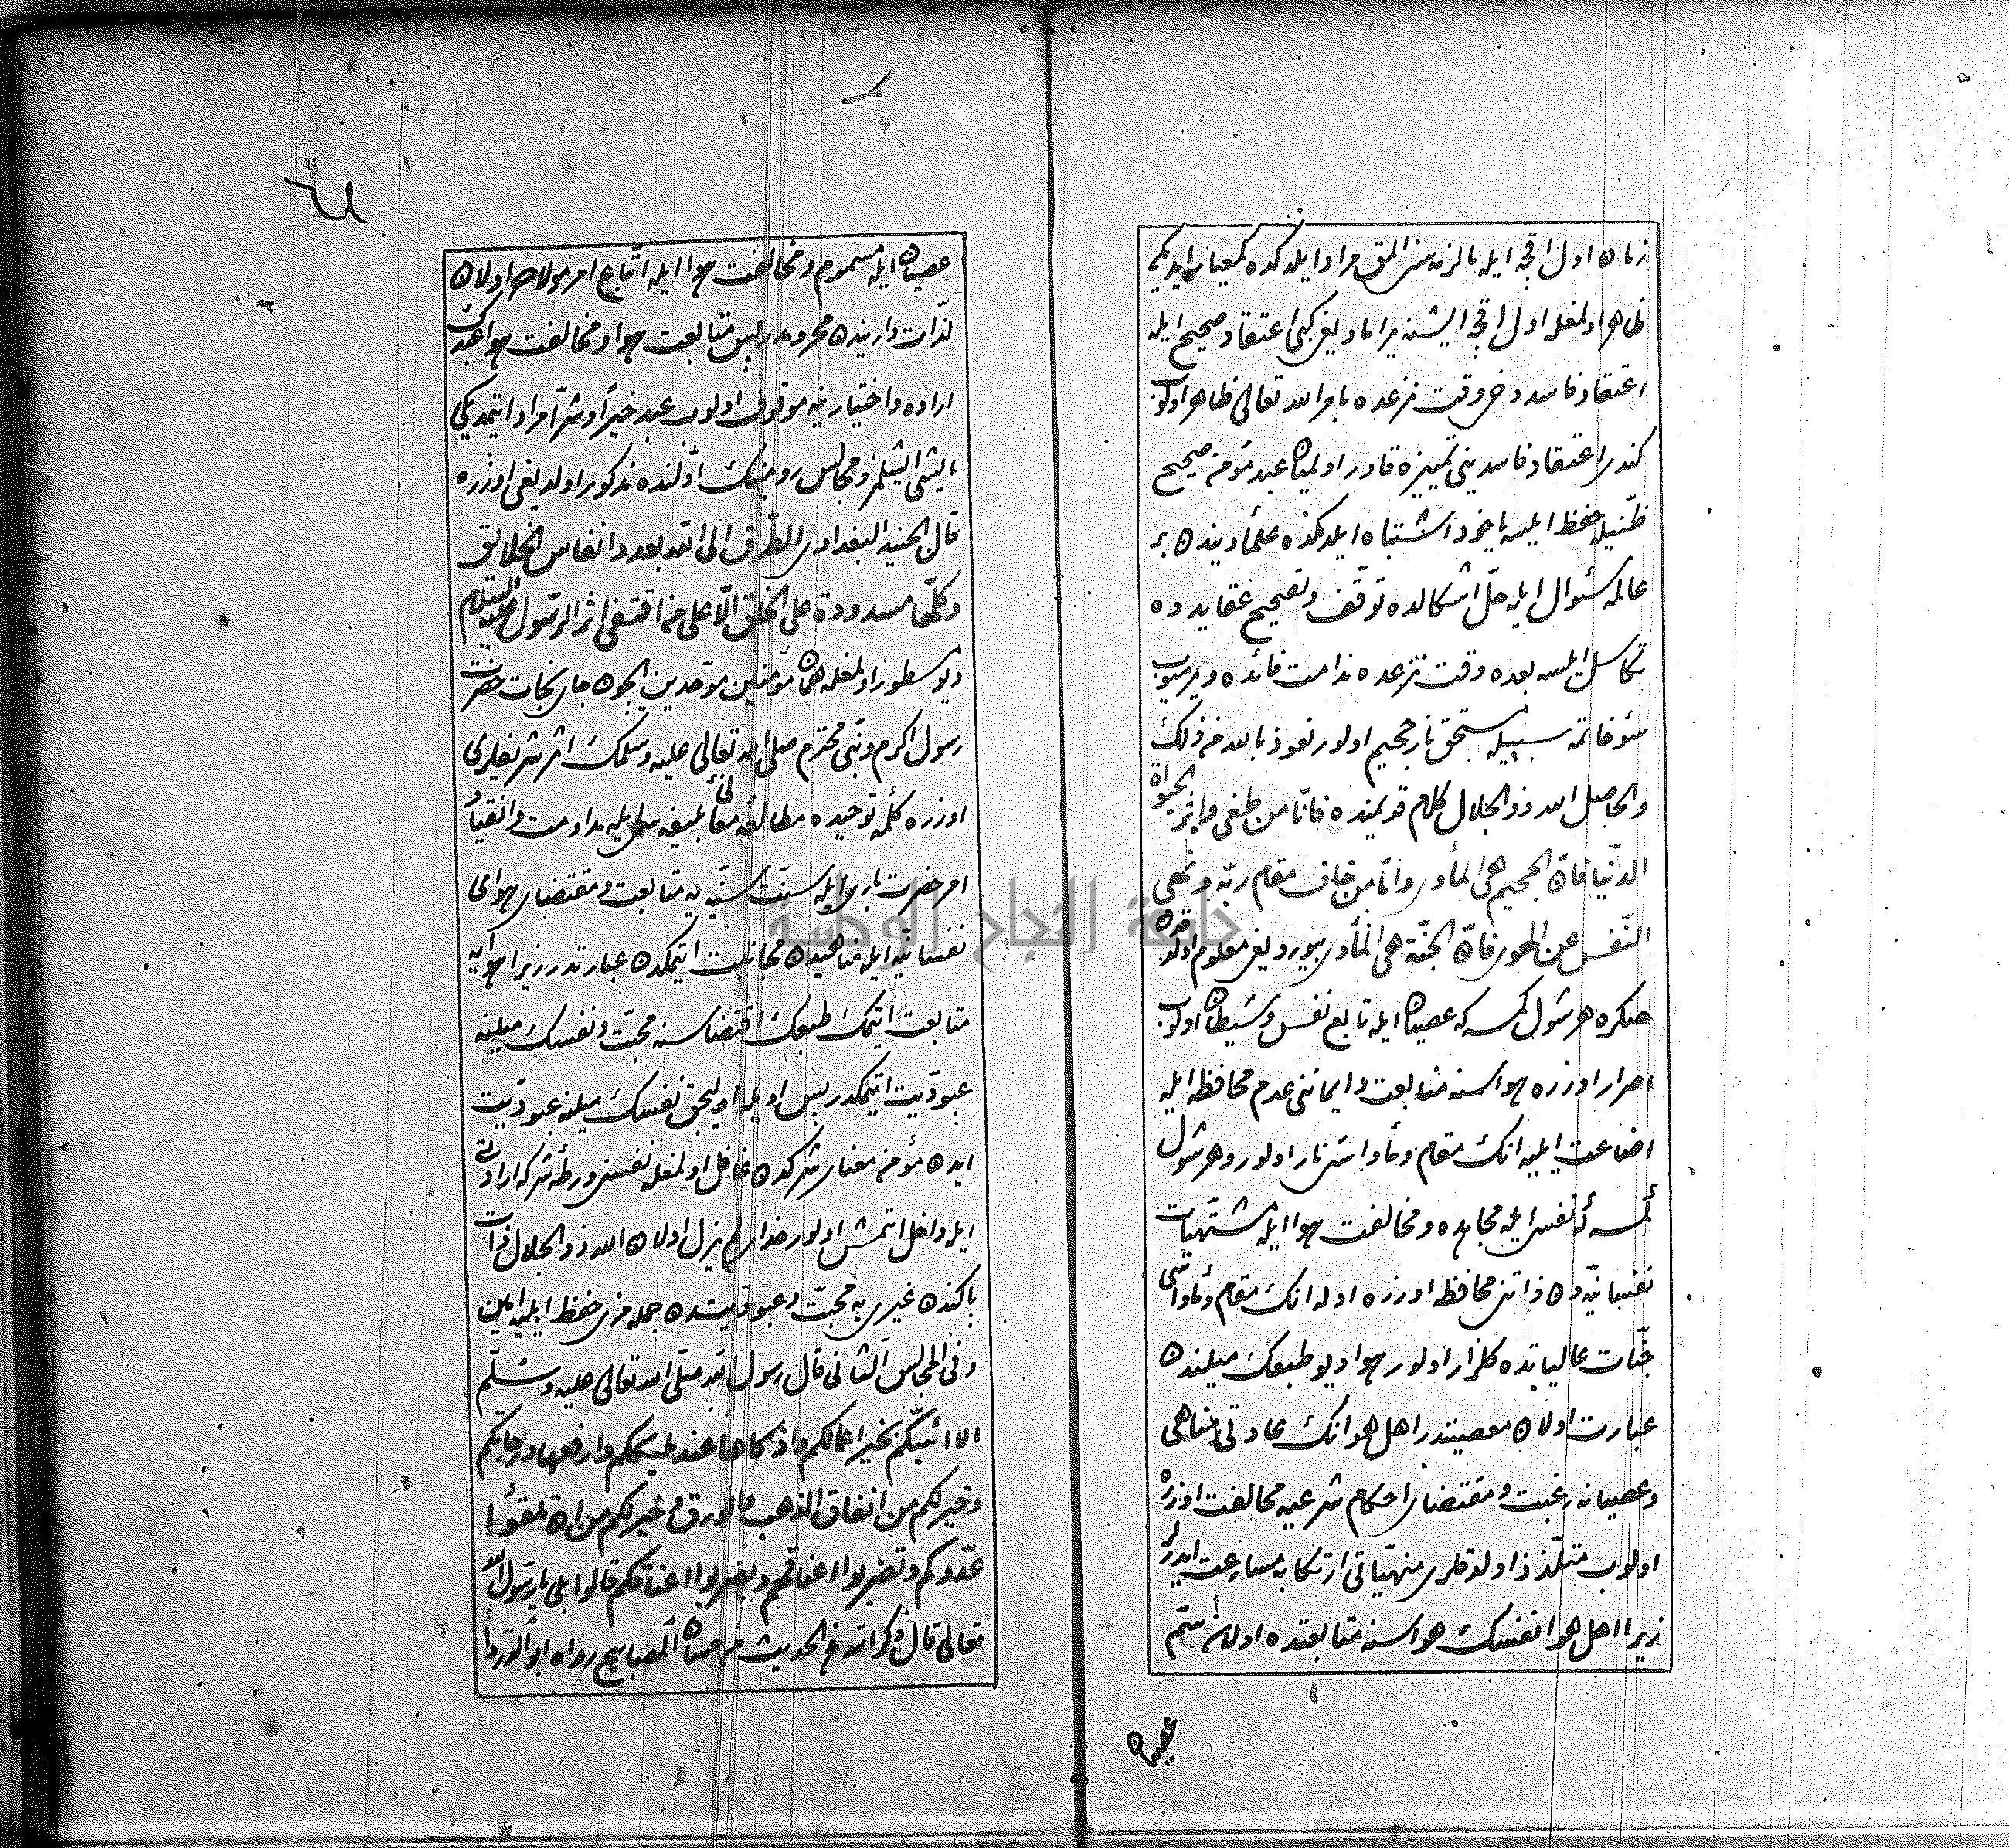 زمان اول اقچه ايله بالزمه سنى المق مراد ايلدكده كمعيار ايديكى
ظاهر اولمغله اول اقچه ايشنه يراماديغى كبى اعتقاد صحيح ايله
اعتقاد فاسد دخى وقت نزعده بامر الله تعالى ظاهر اولوب
كندى اعتقاد فاسدينى تمييزه قادر اولميان عبد مؤمن صحيح
ظنيله حفظ ايلميه ياخود اشتباه ايلدكده علمادن بر
عالمه سئوال ايله حلّ اشكالده توقّف وتصحيح عقايده
تكاسل ايلسه بعده وقت نزعده ندامت فائده ويرميوب
سؤ خاتمه سببيله مستحق نار جحيم اولور نعوذ بالله من ذلك
والحاصل الله ذو الجلال كلام قديمنده فامّا من طغى واثر الحيوة
الدّنيا فانّ الجحيم هى المأوى وامّا من خاف مقام ربّه ونهى
النّفس عن الهوى فانّ الجنّة هى المأوى بيورديغى معلوم اولدقدن
صكره هر شول كمسه كه عصيان ايله تابع نفس وشيطان اولوب
اصرار اوزره هواسنه متابعت وايماننى عدم محافظه ايله
اضاعت ايليه انك مقام ومأواسى نار اولور وهر شول
كمسه كه نفس ايله مجاهده ومخالفت هوا ايله مشتهيات
نفسانيّه دن ذاتنى محافظه اوزره اوله انك مقام ومأواسى
جنّات عالياتده كلزار اولور هوا ديو طبعك ميلندن
عبارت اولان معصيتدر اهل هوانك عادتى مناهى
وعصيانه رغبت ومقتضاى احكام شرعيه مخالفت اوزره
اولوب متلذّذ اولدقلرى منهيّاتى ارتكابه مسارعت ايدرلر
زيرا اهل هوا نفسك هواسنه متابعتده اولان سمّ
عصيان
عصيان ايله مسموم ومخالفت هوا ايله اتّباع امر مولاده اولان
لذّات دارينده محرومدر پس متابعت هوا ومخالفت هوا عبدك
اراده واختيارينه موقوف اولوب عبد خيراً وشرّاً مراد ايتمديكى
ايشى ايشلمز ومجالس رومينك اوّلنده مذكور اولديغى اوزره
قال الجنيد البغدادى الطّرق الى الله بعدد انفاس الخلائق
وكلّها مسدودة على الخلق الّا على من اقتفى اثر الرّسول عليه السّلام
ديو مسطور اولمغله همان مؤمنين موحّدين ايچون جاى نجات حضرت
رسول اكرم ونبىّ محترم صلى الله تعالى عليه وسلمك اثر شريفلرى
اوزره كلمه توحيده مطالعه معانى بليغه سى ايله مداومت وانقياد
امر حضرت بارى ايله سنّت سنيّه يه متابعت ومقتضاى هواى
نفسانيّه ايله مناهيدن مجانبت ايتمكدن عبارتدر زيرا هوايه
متابعت ايتمك طبعك اقتضاسنه محبّت ونفسك ميلنه
عبوديّت ايتمكدر پس اويله اوليجق نفسك ميلنه عبوديّت
ايدن مؤمن معناى شركدن غافل اولمغله نفسنى ورطه شركه ارادتى
ايله داخل ايتمش اولور خداى لم يزل اولان الله ذو الجلال ذات
پاكندن غيرى يه محبّت وعبوديتدن جمله مزى حفظ ايليه امين
وفى المجالس الثّانى قال رسول الله صلّى الله تعالى عليه وسلّم
الا انبّئكم بخير اعمالكم وازكاها عند مليككم وارفعها درجاتكم
وخير لكم من انفاق الذّهب والورق وخير لكم من ان تلقوا
عدوّكم وتضربوا اعناقهم ويضربوا اعناقكم قالوا بلى يا رسول الله
تعالى قال ذكر الله من الحديث من حسان المصابيح رواه ابو الدّردأ